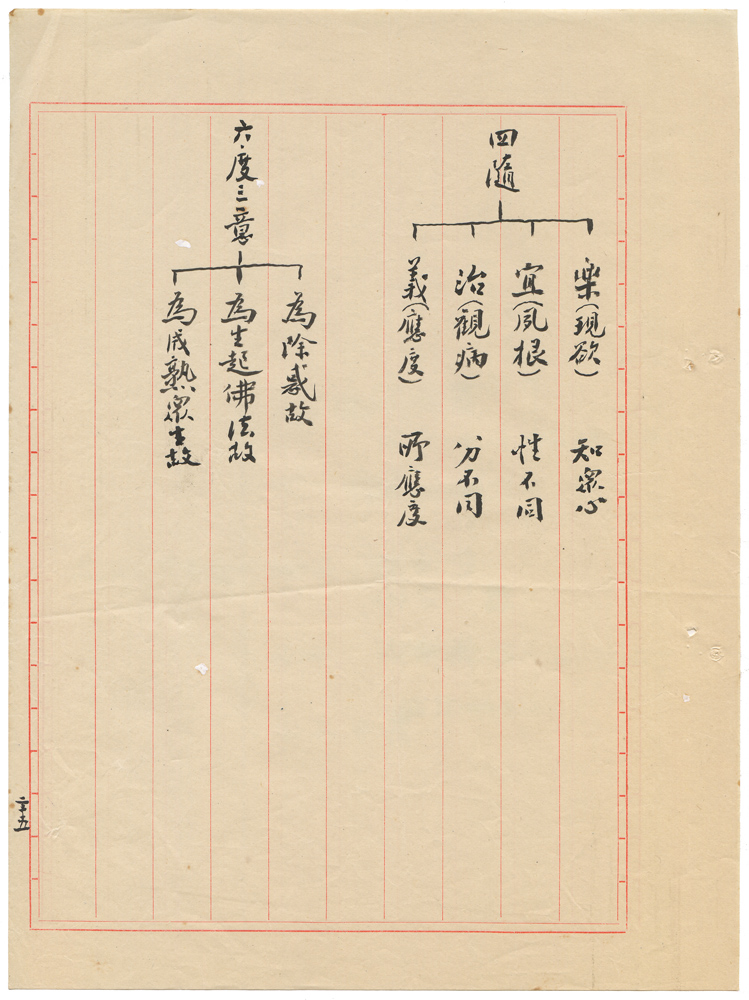 四隨
楽(現欲) 知衆心
宜(夙根) 性不同
治(觀病) 分不同
義(應度) 所應度
六度三意
為除惑故
為生起佛法故
為成熟衆生故
二十五